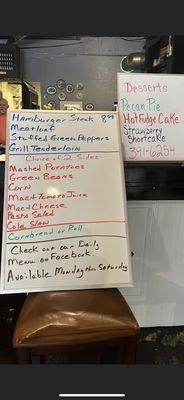 Hamburger Steak 8.99
Meatloaf
Stuffed Green Peppers
Grill Tenderloin
Choice of 2 Sides
Mashed Potatoes
Green Beans
Corn
Mac+Tomato Juice
Mac+Cheese
Pasta Salad
Cole Slaw
Cornbread or Roll
Check out our Daily
Menu on Facebook.
Available Monday thru Saturday
Desserts
Pecan Pie
Hot Fudge Cake
Strawberry
Shortcake
391-6254